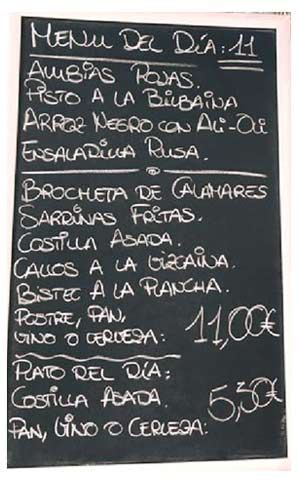 MENU DEL DÍA: 11
ALUBIAS ROJAS.
PISTO A LA BILBAINA
ARROZ NEGRO CON ALI-OLI
ENSALADILLA RUSA.
BROCHETA DE CALAMARES
SARDINAS FRITAS.
COSTILLA ASADA.
CALLOS A LA VIZCAINA.
BISTEC A LA PLANCHA.
POSTRE, PAN,
VINO O CERVEZA: 11,00€
PLATO DEL DÍA:
COSTILLA ASADA. 5,50€
PAN, VINO O CERVEZA: